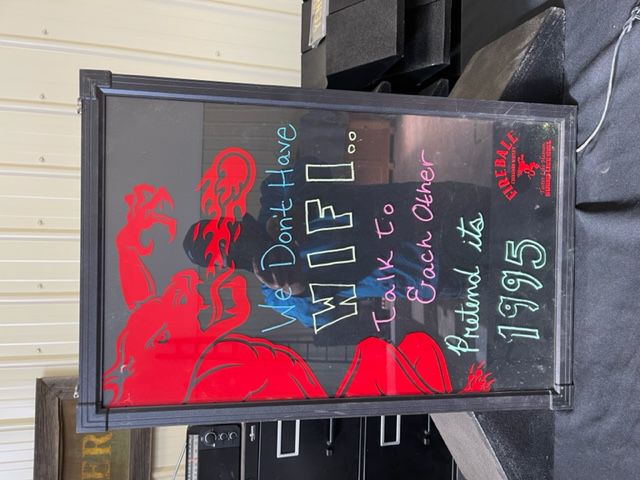 We Don't Have
WIFI...
Talk to
Each Other
Pretend its
1995
FIREBALL
ER